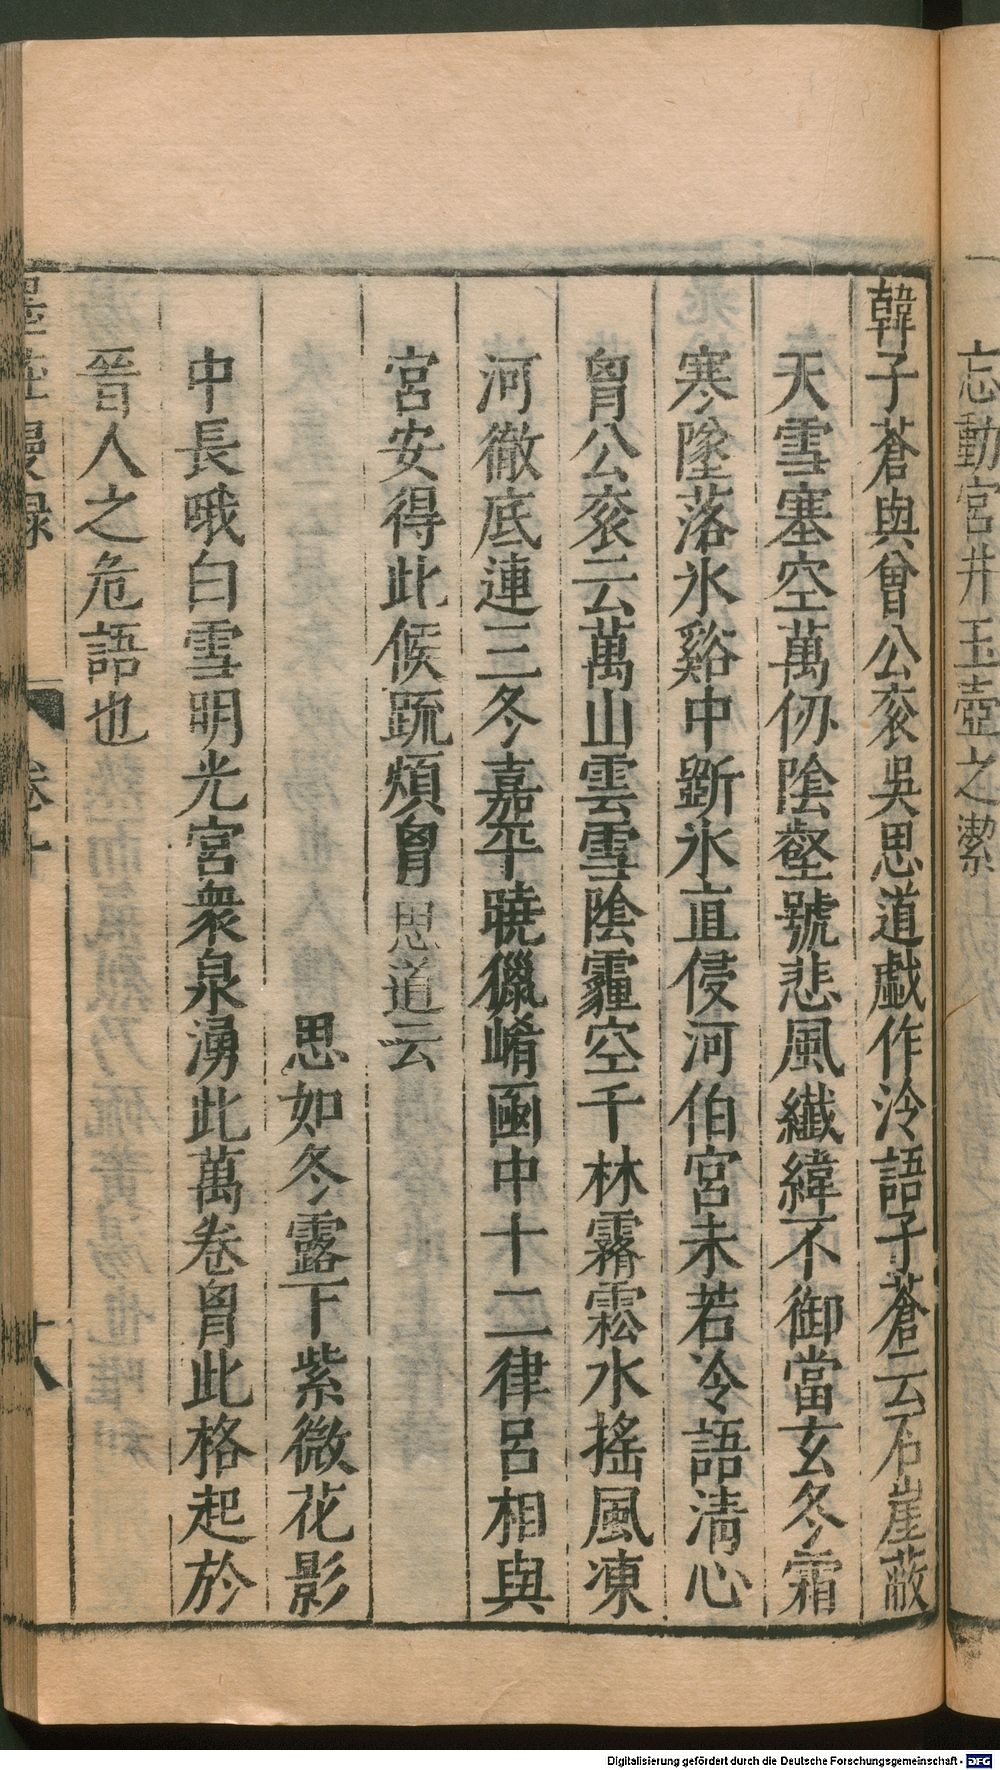 忘動宮井玉壺之潔
韓子蒼與曾公袞吳思道戲作泠語子蒼云石崖蔽
天雪塞空萬仞陰壑號悲風纖緯不御當玄冬霜
寒墜落氷谿中斲氷直侵河伯宮未若冷語清心
胷公袞云萬山雲雪陰霾空千林霧霿水搖風凍
河徹底連三冬嘉平曉獵崤函中十二律呂相與
宮安得此候䟽煩胷思道云
思如冬露下紫微花影
中長哦白雪明光宮衆泉湧此萬卷胷此格起於
晉人之危語也
墨莊漫録 卷十 十八
Digitalisierung gefördert durch die Deutsche Forschungsgemeinschaft - DFG